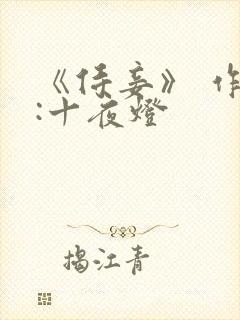 《侍妾》 作
:十夜燈
揭江青